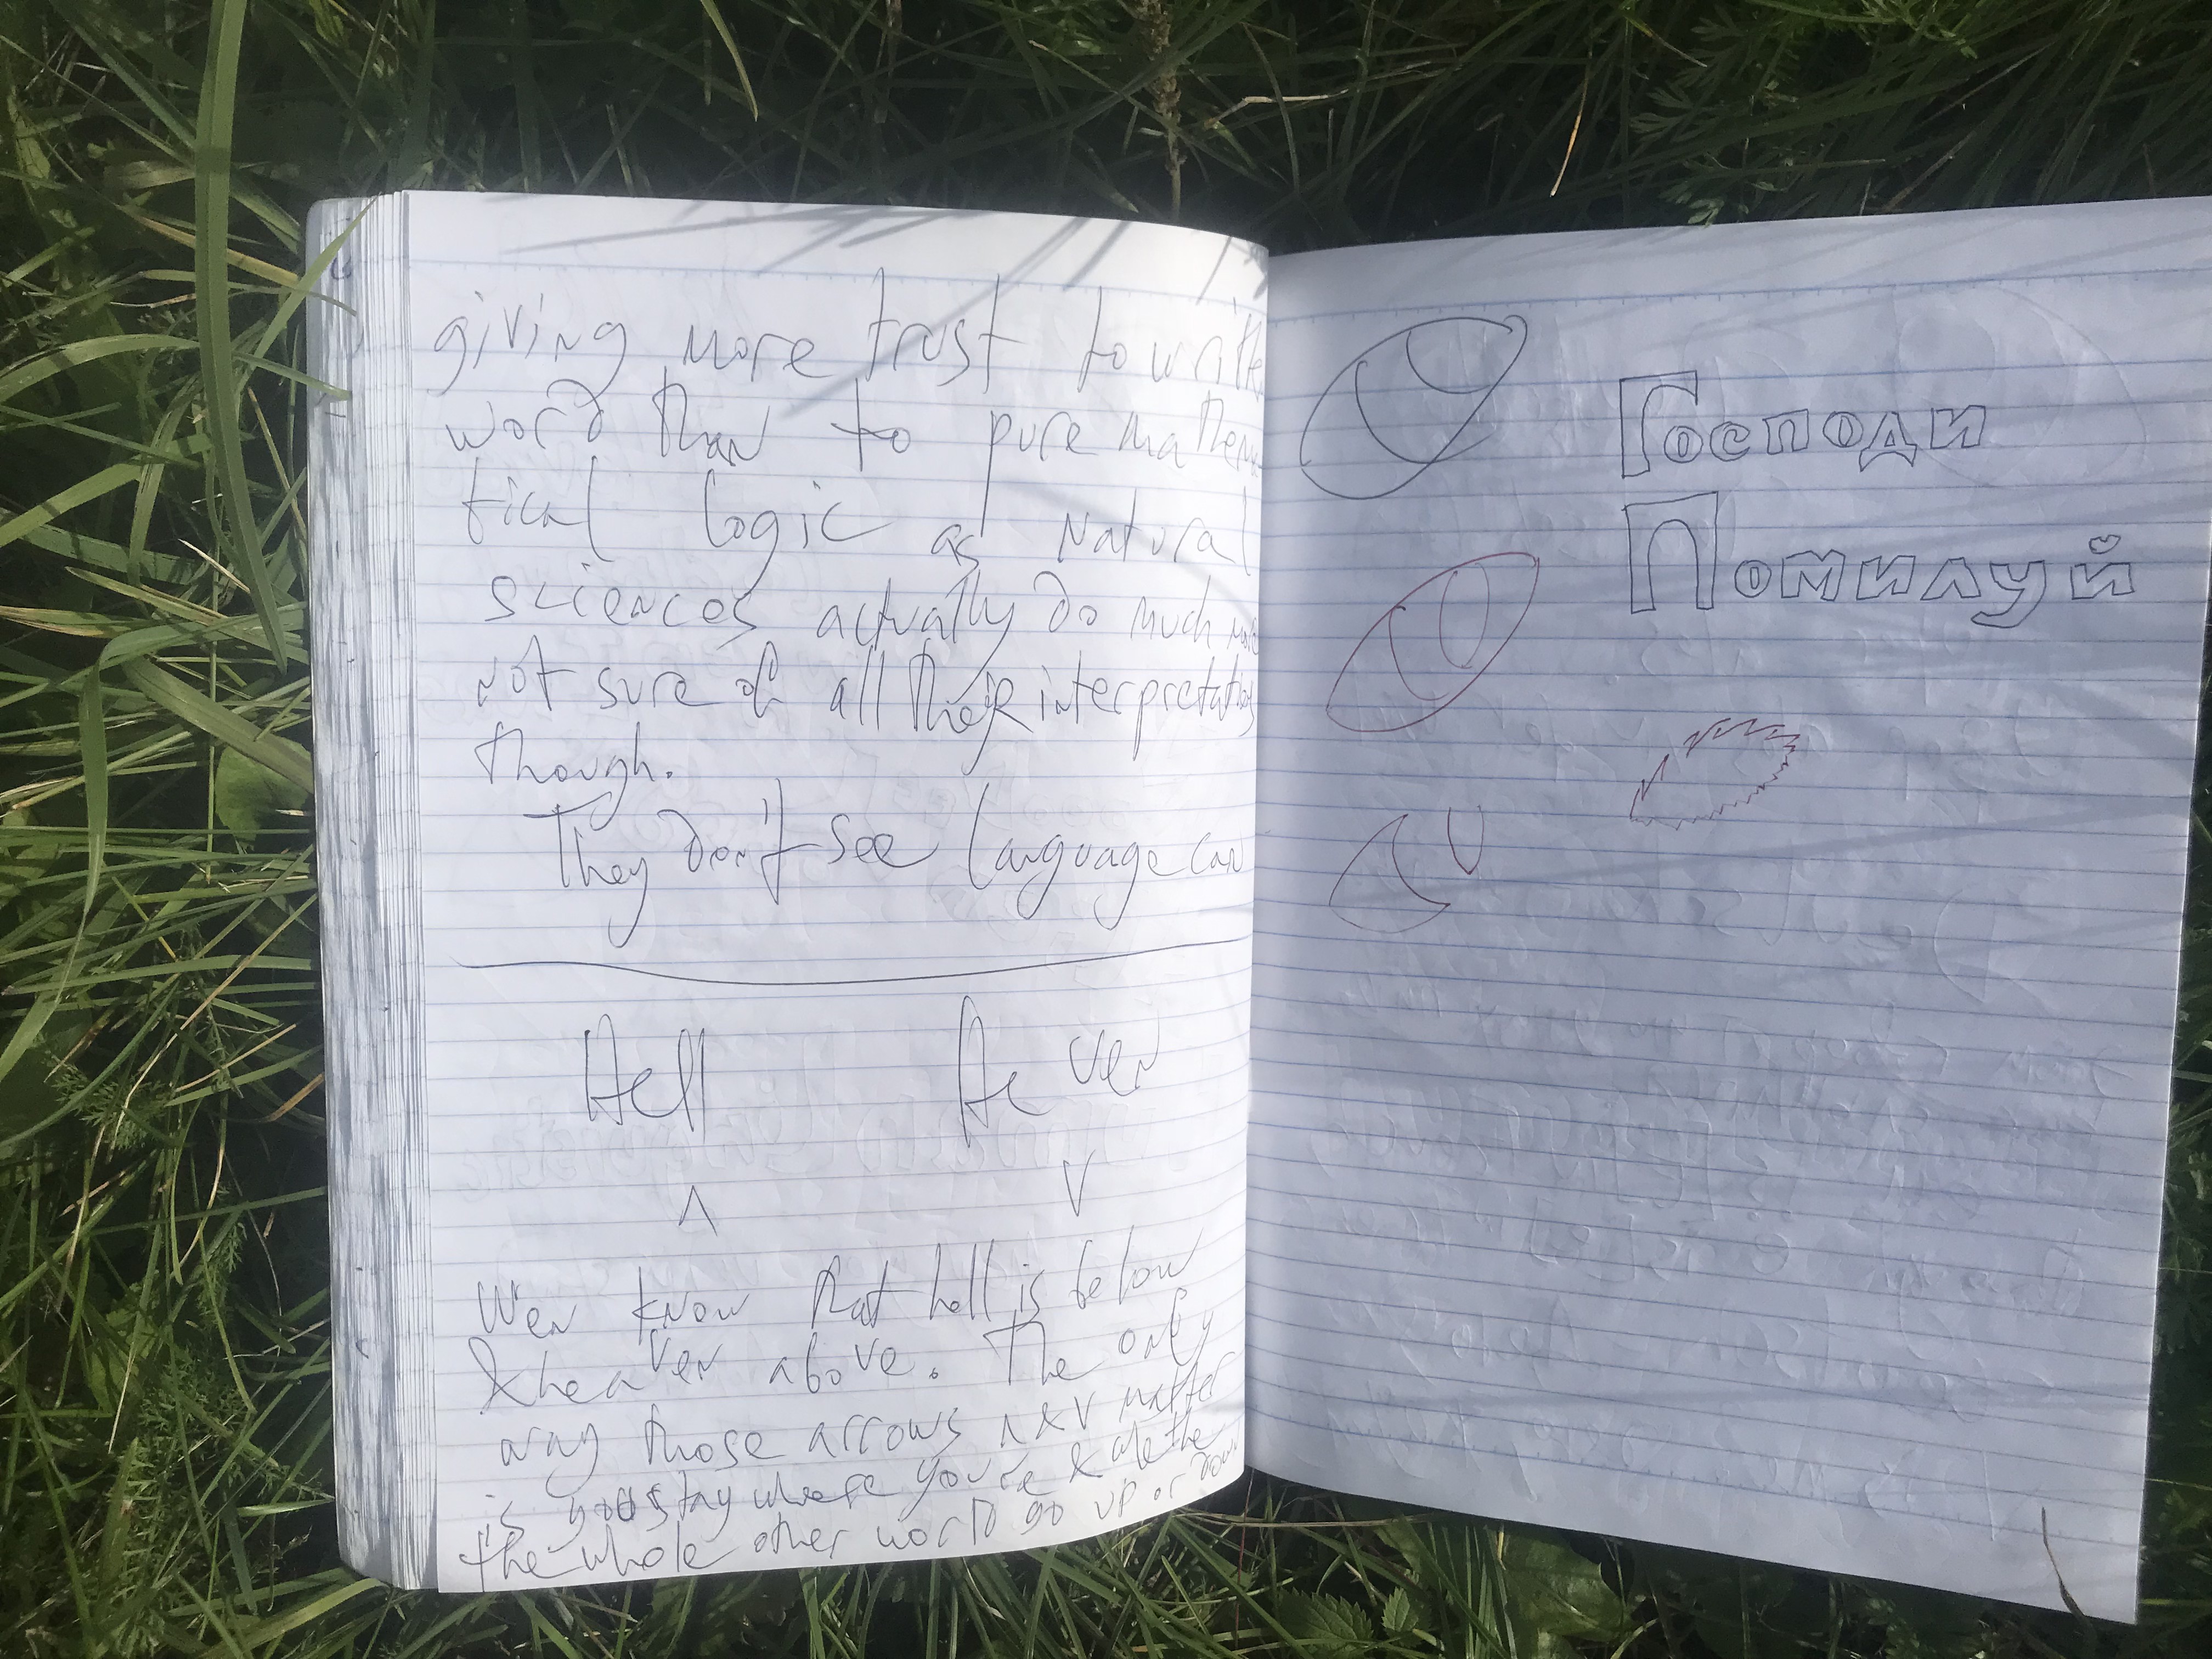 giving more trust to write
word than to pure mathema
tical logic as natural
sciences actually do much more
not sure of all their interpretations
though.
They don't see language can
Hell He Ven
^ v
Wen know that hell is below
& heaven above. The only
way those arrows
is you stay where you're & the
the whole other world go up or down
Господи
Помилуй